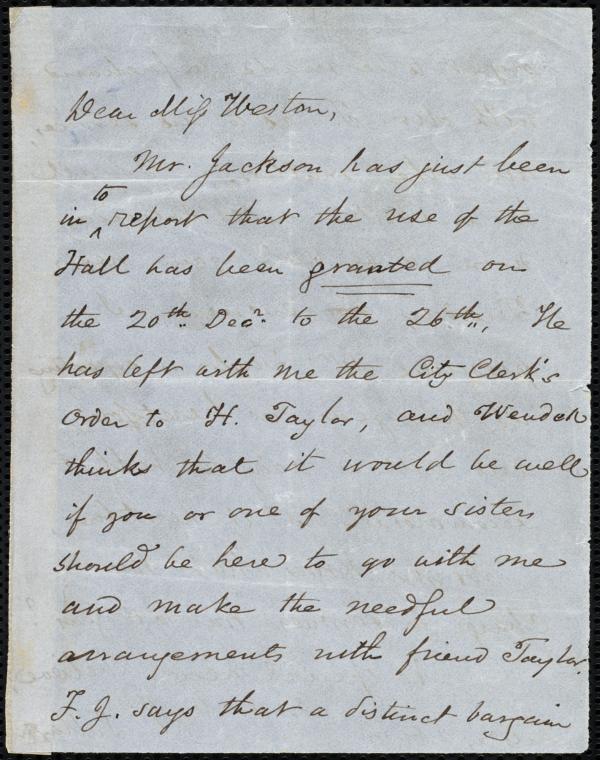 Dear Miss Weston,
Mr. Jackson has just been
in to report that the use of the
Hall has been granted on
the 20th Decr. to the 26th. He
has left with me the City Clerk's
order to H. Taylor, and Wendell
thinks that it would be well
if you or one of your sisters
should be here to go with me
and make the needful
arrangements with friend Taylor.
F. J. says that a distinct bargain